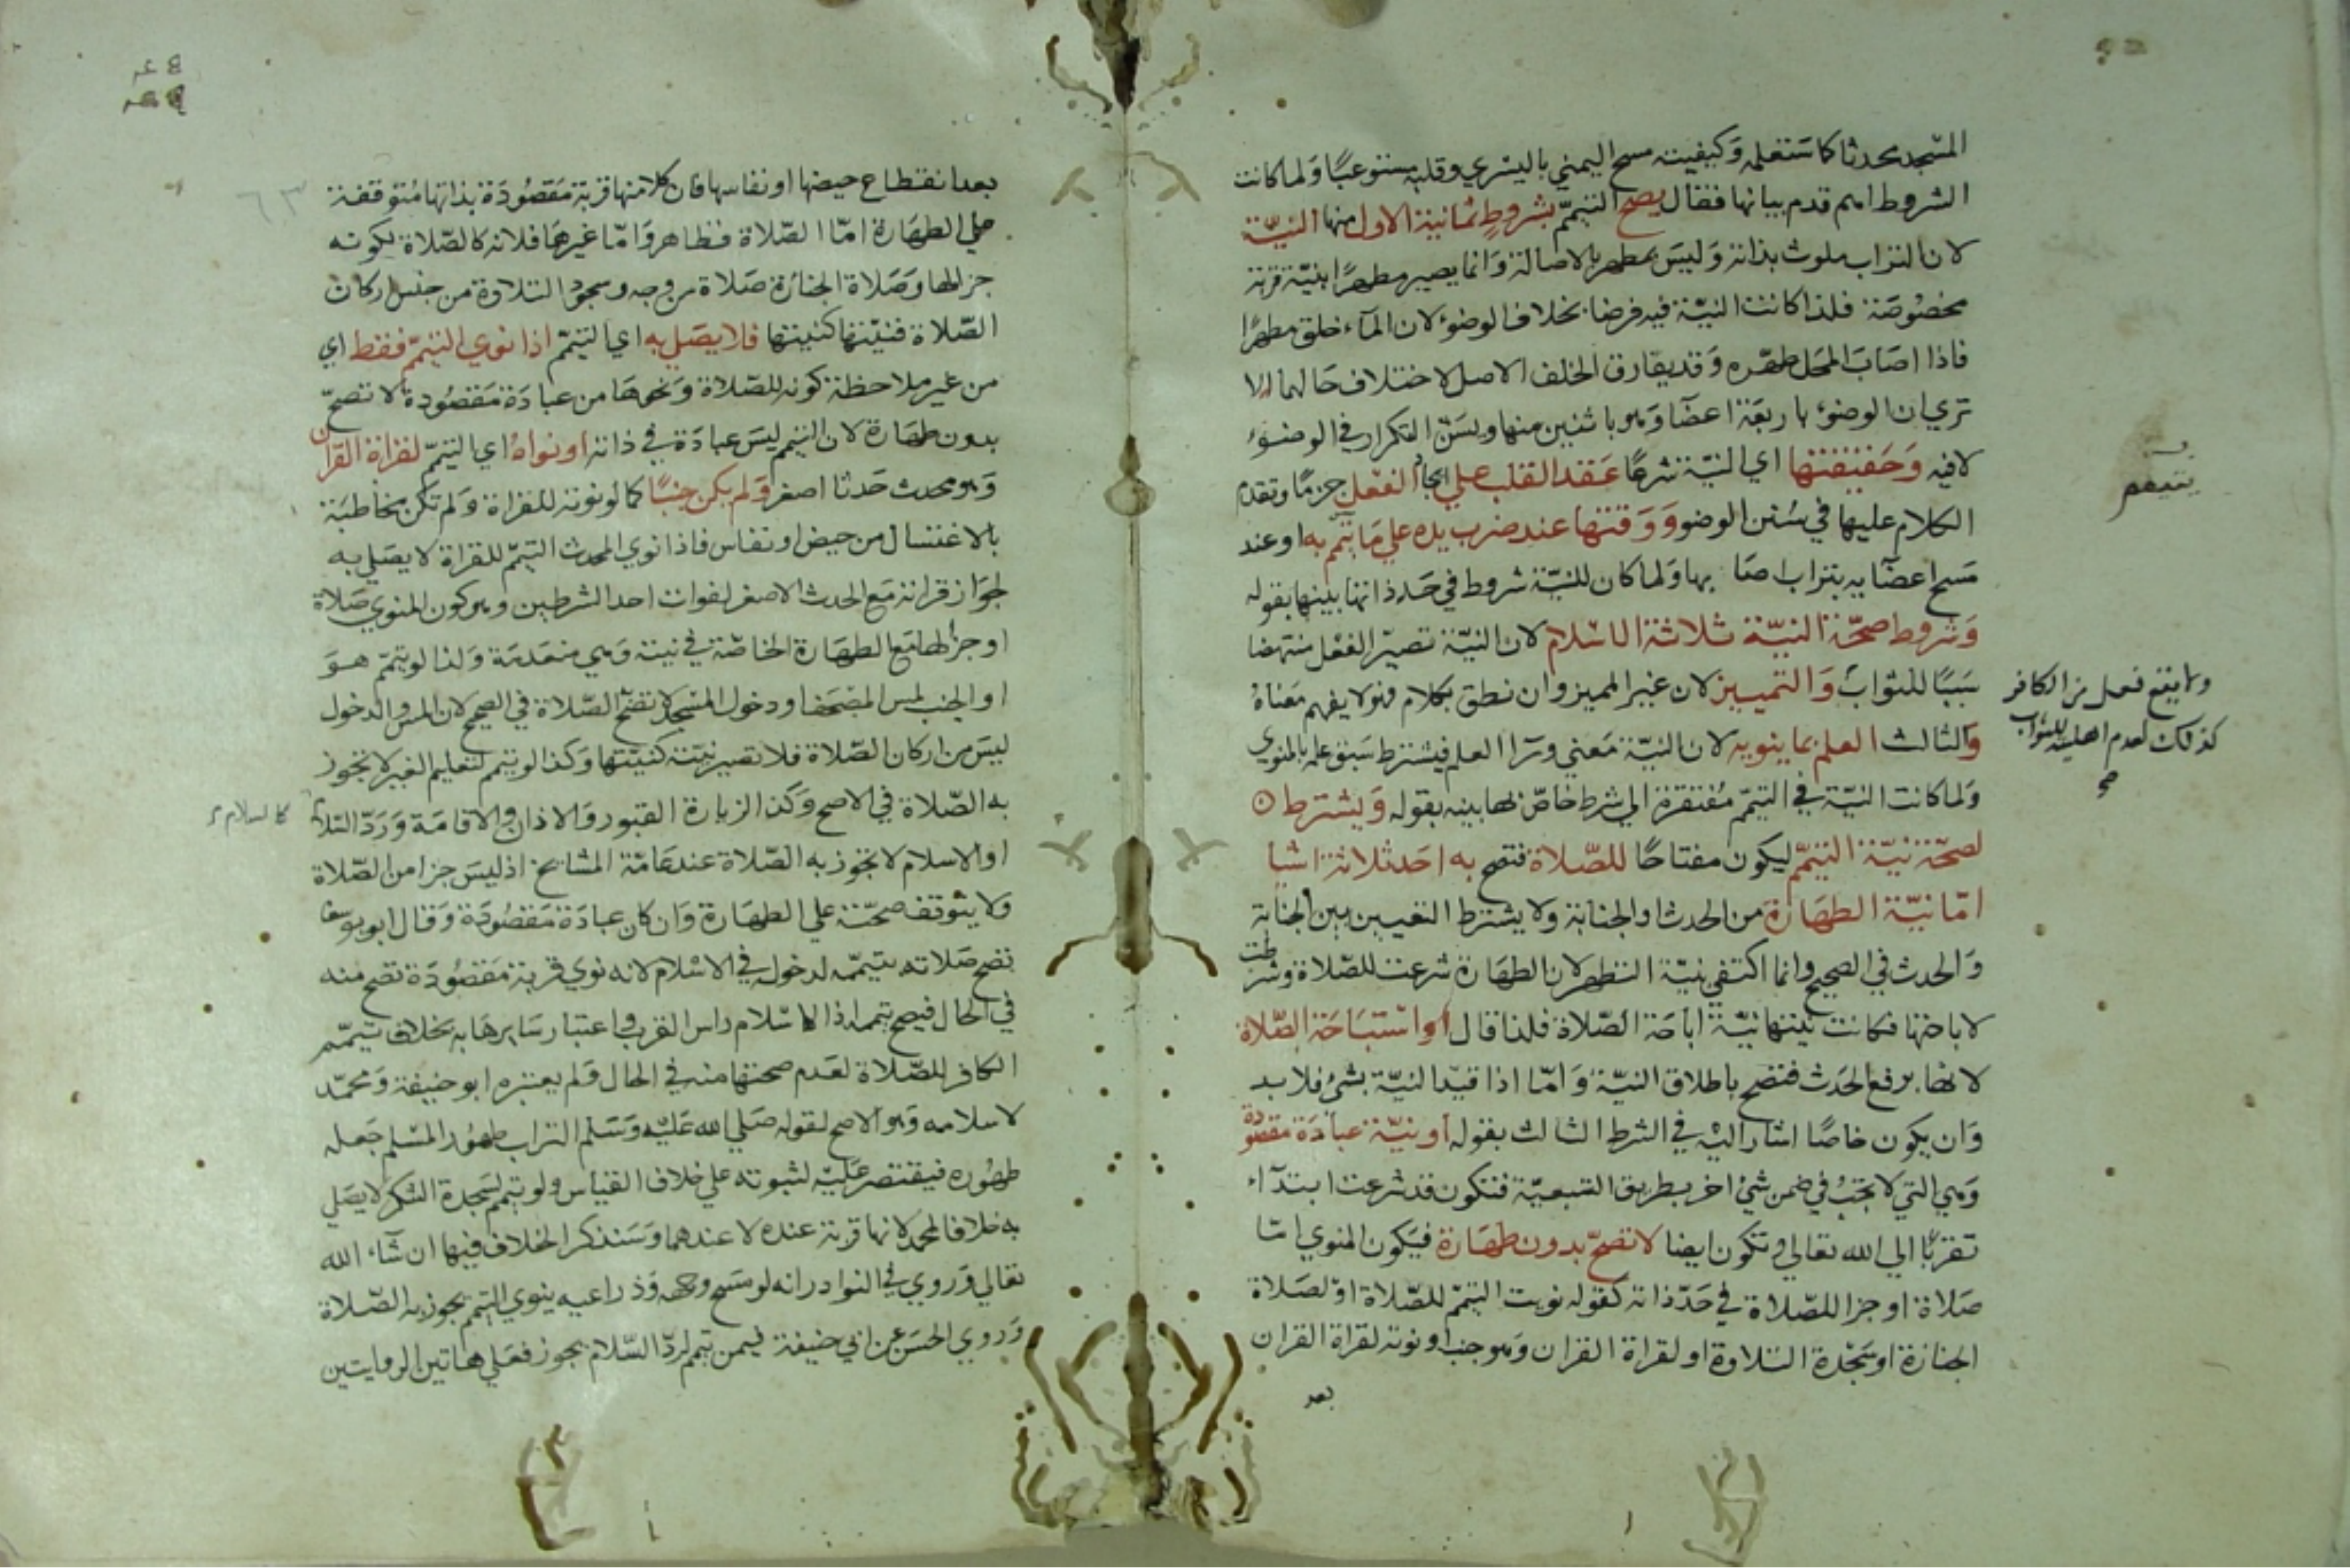 المسجد محدثا كما ستعلمه وكيفيته مسح اليمني باليسري وقلبه مستوعبا ولما كانت
الشروط اهم قدم بيانها فقال يصح التيمم بشروط ثمانية الاول منها النية
لان التراب ملوث بذاته وليس بمطهر بالاصالة وانما يصير مطهرا بنية قربة
مخصوصة فلذا كانت النية فيه فرضا بخلاف الوضوء لان الماء خلق مطهرا
فاذا اصاب المحل طهره وقد يفارق الخلف الاصل لاختلاف حالهما الا
تري ان الوضوء باربعة اعضا وهو باثنين منها ويسن التكرار في الوضوء
لا فيه وحقيقتها اي النية شرعا عقد القلب علي ايجاد الفعل جزما وتقدم
الكلام عليها في سنن الوضوء ووقتها عند ضرب يده علي ما يتيمم به او عند
مسح اعضايه بتراب اصابها ولما كان للنية شروط في حد ذاتها بينها بقوله
وشروط صحة النية ثلاثة الاسلام لان النية تصير الفعل منتهضا
سببا للثواب والتمييز لان غير المميز وان نطق بكلام فهو لا يفهم معناه
والثالث العلم بما ينويه لان النية معني ورآ العلم فيشترط سبق علمه بالمنوي
ولما كانت النية في التيمم مفتقرة الي شرط خاص لها بينه بقوله ويشترط
لصحة نية التيمم ليكون مفتاحا للصلاة فتصح به احد ثلاثة اشيا
اما نية الطهارة من الحدث او الجنابة ولا يشترط التعيين بين الجنابة
والحدث في الصحيح وانما اكتفي بنية التطهر لان الطهارة شرعت للصلاة وشرطت
لاباحتها فكانت نيتها نية اباحة الصلاة فلذا قال او استباحة الصلاة
لانها برفع الحدث فتصح باطلاق النية واما اذا قيد النية بشئ فلا بد
وان يكون خاصا اشار اليه في الشرط الثالث بقوله او نية عبادة مقصودة
وهي التي لا تجب في ضمن شئ اخر بطريق التبعية فتكون قد شرعت ابتدآء
تقربا الي الله تعالي وتكون ايضا لا تصح بدون طهارة فيكون المنوي اما
صلاة او جزا للصلاة في حد ذاته كقوله نويت التيمم للصلاة او لصلاة
الجنازة او سجدة التلاوة او لقراة القران وهو جنب او نوته لقراة القران
بعد
ولا يقع فعل من الكافر
كذلك لعدم اهليته للثواب
صح
بعد انقطاع حيضها او نفاسها فان كلا منها قربة مقصودة بذاتها متوقفة
علي الطهارة اما الصلاة فظاهر واما غيرها فلانه كالصلاة لكونه
جزا لها وصلاة الجنازة صلاة من وجه وسجود التلاوة من جنس اركان
الصلاة فنيتها كنيتها فلا يصلي به اي التيمم اذا نوي التيمم فقط اي
من غير ملاحظة كونه للصلاة ونحوها من عبادة مقصودة لا تصح
بدون طهارة لان التيمم ليس عبادة في ذاته او نواه اي التيمم لقراة القران
وهو محدث حدثا اصغر ولم يكن جنبا كما لو نوته للقراة ولم تكن مخاطبة
بالاغتسال من حيض او نفاس فاذا نوي المحدث التيمم للقراة لا يصلي به
لجواز قراته مع الحدث الاصغر لفوات احد الشرطين وهو كون المنوي صلاة
او جزا لها مع الطهارة الخاصة في نيته وهي منعدمة ولذا لو تيمم هو
او الجنب لمس المصحف او دخول المسجد لا تصح الصلاة في الصحيح لان المس والدخول
ليس من اركان الصلاة فلا تصير نيته كنيتها وكذا لو تيمم لتعليم الغير لا تجوز
به الصلاة في الاصح وكذا لزيارة القبور والاذان والاقامة ورد السلام
او الاسلام لا تجوز به الصلاة عند عامة المشايخ اذ ليس جزا من الصلاة
ولا يتوقف صحته علي الطهارة وان كان عبادة مقصودة وقال ابو يوسف
تصح صلاته بتيممه لدخوله في الاسلام لانه نوي قربة مقصودة تصح منه
في الحال فيصح تيممه اذ الاسلام راس القرب واعتبار سايرها به بخلاف تيمم
الكافر للصلاة لعدم صحتها منه في الحال ولم يعتبره ابو حنيفة ومحمد
لاسلامه وهو الاصح لقوله صلي الله عليه وسلم التراب طهور المسلم جعله
طهوره فيقتصر عليه لثبوته علي خلاف القياس ولو تيمم لسجدة الشكر لا يصلي
به خلافا لمحمد لانها قربة عنده لا عندهما وسنذكر الخلاف فيها ان شآء الله
تعالي وروي في النوادر انه لو مسح وجهه وذراعيه ينوي التيمم يجوز به الصلاة
وروي الحسن عن ابي حنيفة فيمن تيمم لرد السلام يجوز فعلي هاتين الروايتين
٦٣
كالسلام